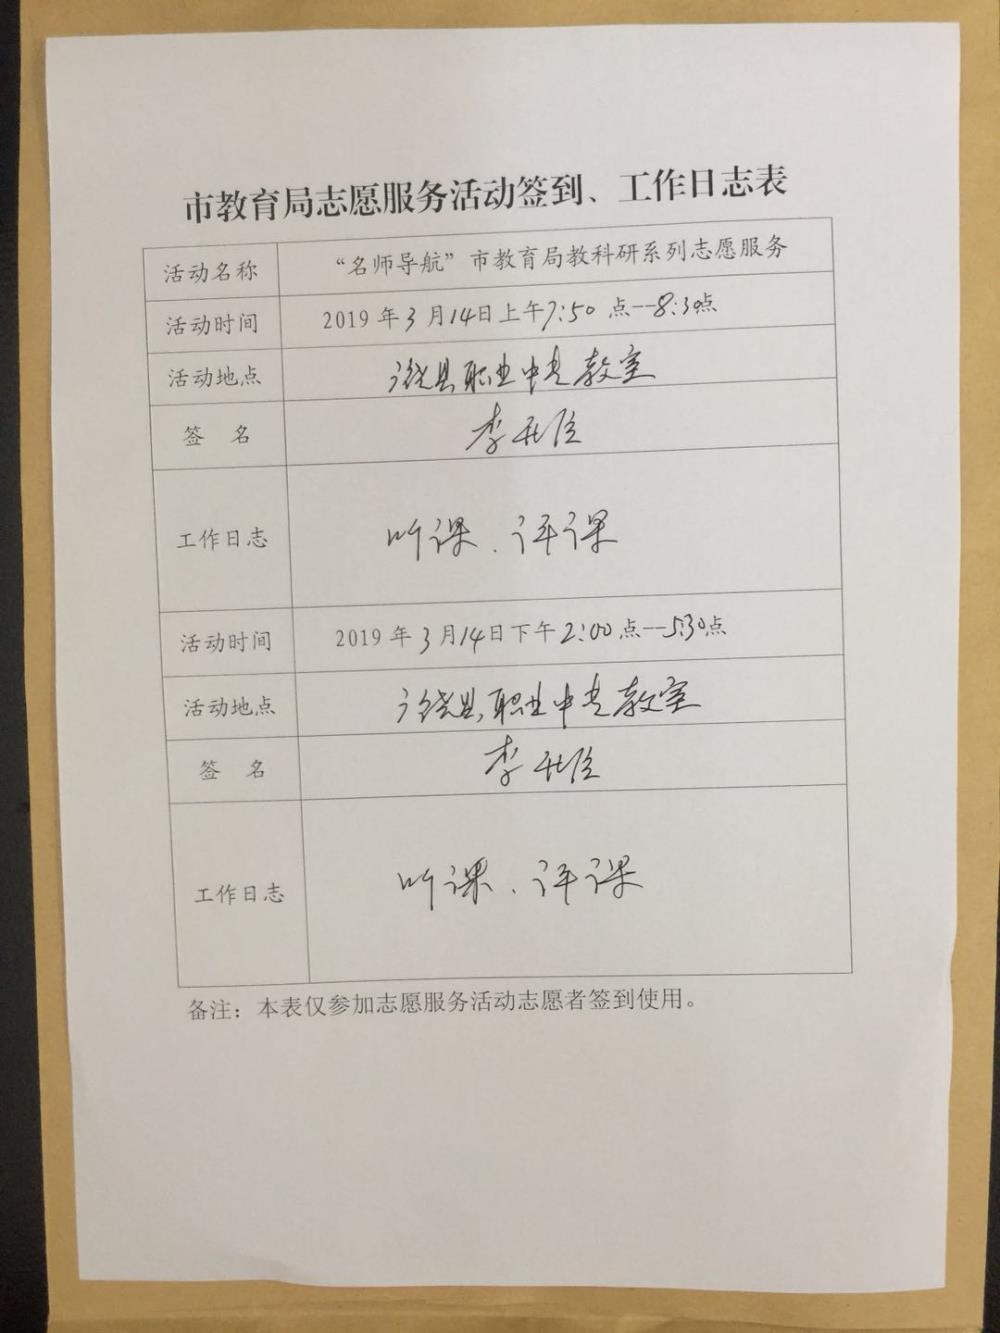 市教育局志愿服务活动签到、工作日志表
活动名称 “名师导航”市教育局教科研系列志愿服务
活动时间 2019年3月14日上午7:50点--8:30点
活动地点 县职业中专教室
签 名 李
工作日志 听课、评课
活动时间 2019年3月14日下午2:00点--5:30点
活动地点 县职业中专教室
签 名 李
工作日志 听课、评课
备注：本表仅参加志愿服务活动志愿者签到使用。